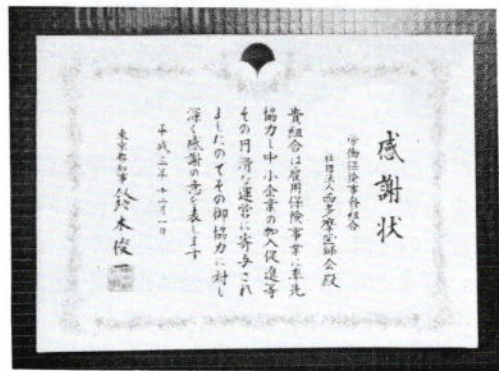 感謝状
労働保険事務組合
社団法人西多摩登録会殿
貴組合は雇用保険事業に率先
協力し中小企業の加入促進等
その円滑な運営に寄与され
ましたのでその御協力に対し
深く感謝の意を表します
平成三年十二月一日
東京都知事 鈴木俊一